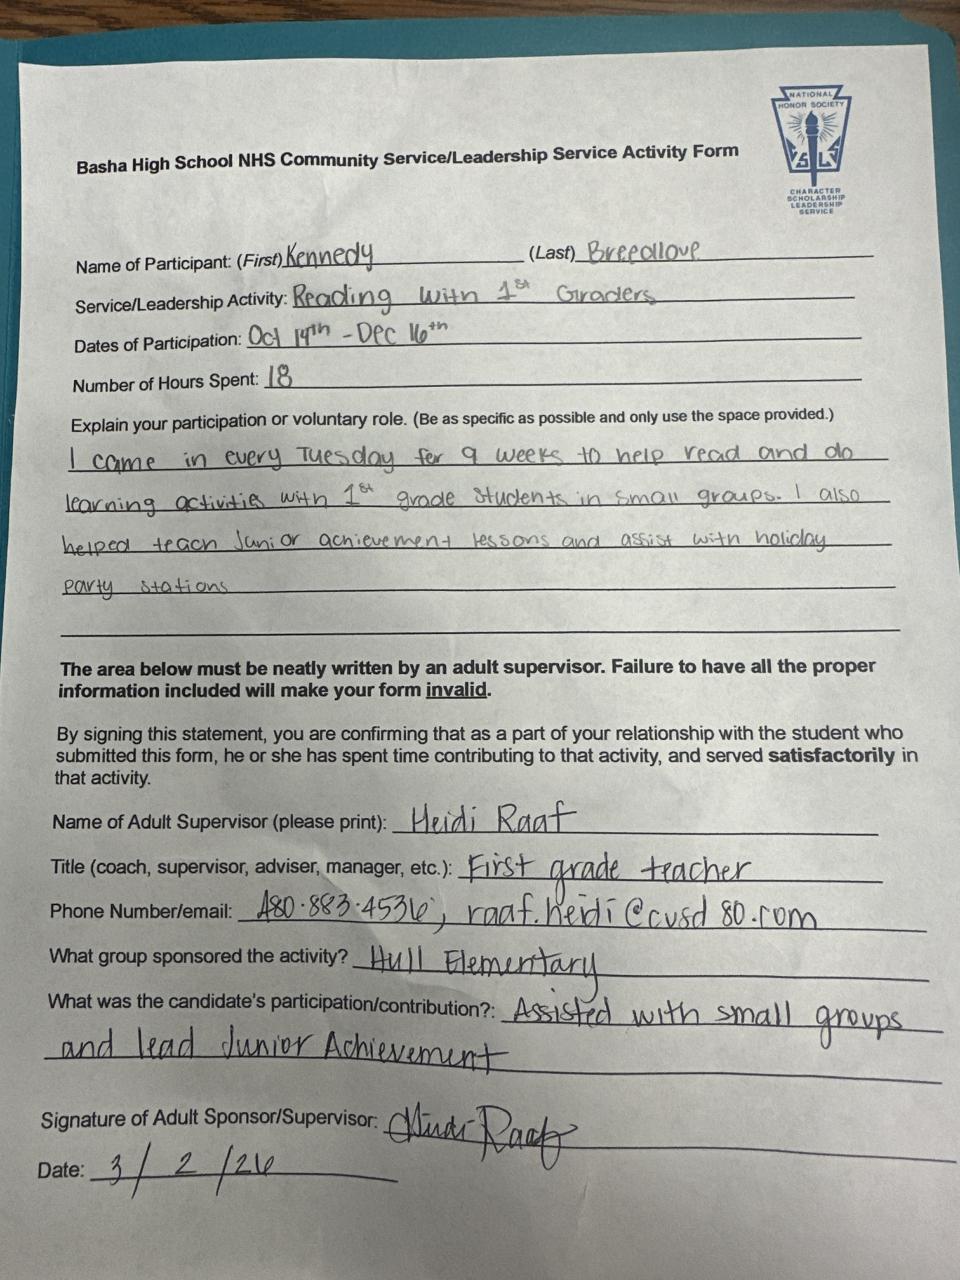 NATIONAL
HONOR SOCIETY
CHARACTER
SCHOLARSHIP
LEADERSHIP
SERVICE
Basha High School NHS Community Service/Leadership Service Activity Form
Name of Participant: (First) Kennedy (Last) Breedlove
Service/Leadership Activity: Reading with 1st Graders
Dates of Participation: Oct 14th - Dec 16th
Number of Hours Spent: 18
Explain your participation or voluntary role. (Be as specific as possible and only use the space provided.)
I came in every Tuesday for 9 weeks to help read and do
learning activities with 1st grade students in small groups. I also
helped teach Junior achievement lessons and assist with holiday
party stations
The area below must be neatly written by an adult supervisor. Failure to have all the proper
information included will make your form invalid.
By signing this statement, you are confirming that as a part of your relationship with the student who
submitted this form, he or she has spent time contributing to that activity, and served satisfactorily in
that activity.
Name of Adult Supervisor (please print): Heidi Raaf
Title (coach, supervisor, adviser, manager, etc.): First grade teacher
Phone Number/email: 480·883·4536, raaf.heidi@cvsd80.com
What group sponsored the activity? Hull Elementary
What was the candidate's participation/contribution?: Assisted with small groups
and lead Junior Achievement
Signature of Adult Sponsor/Supervisor: Heidi Raaf
Date: 3/2/26